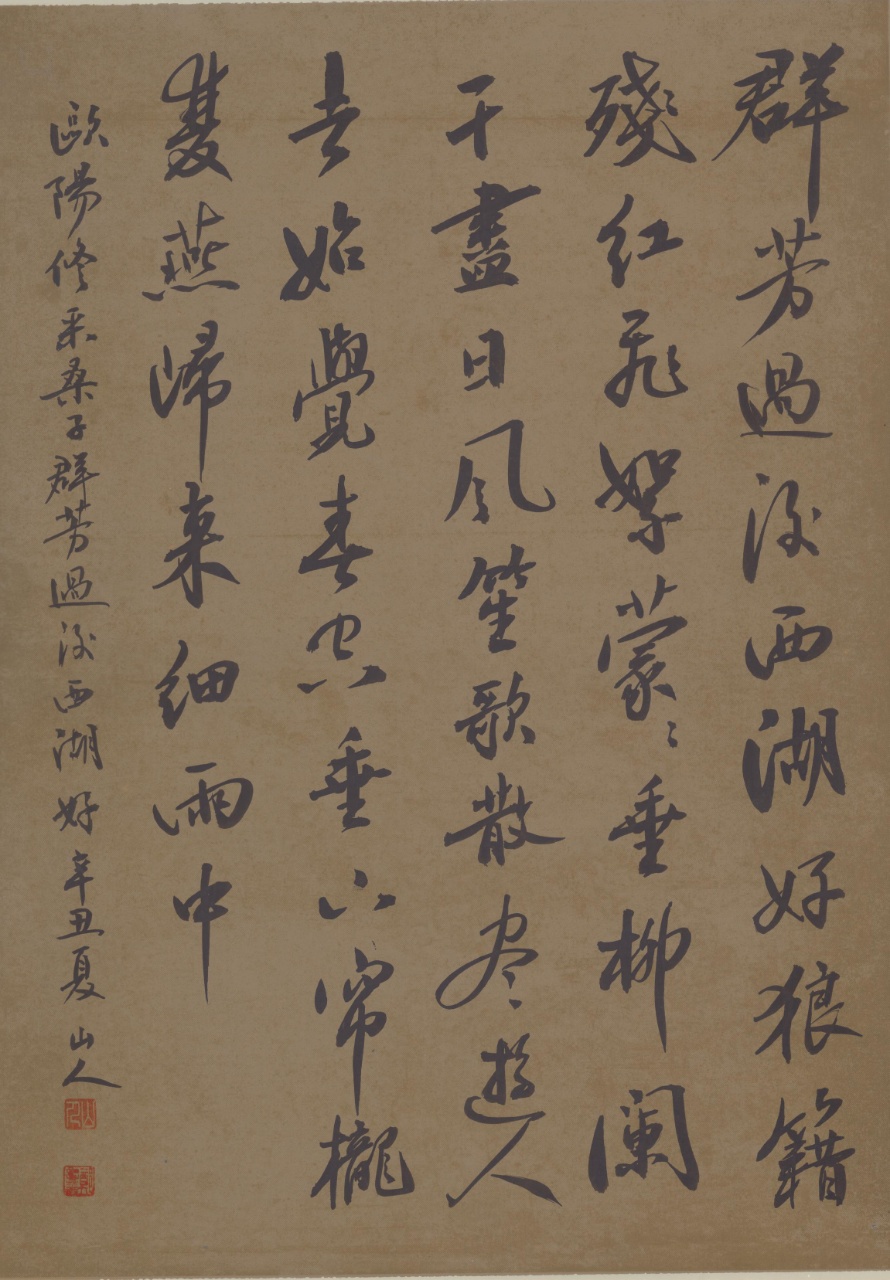 群芳過後西湖好狼籍
殘紅飛絮濛〻垂柳闌
干盡日風笙歌散尽遊人
去始覺春空垂下帘櫳
雙燕歸來细雨中
歐陽修采桑子群芳過後西湖好辛丑夏山人